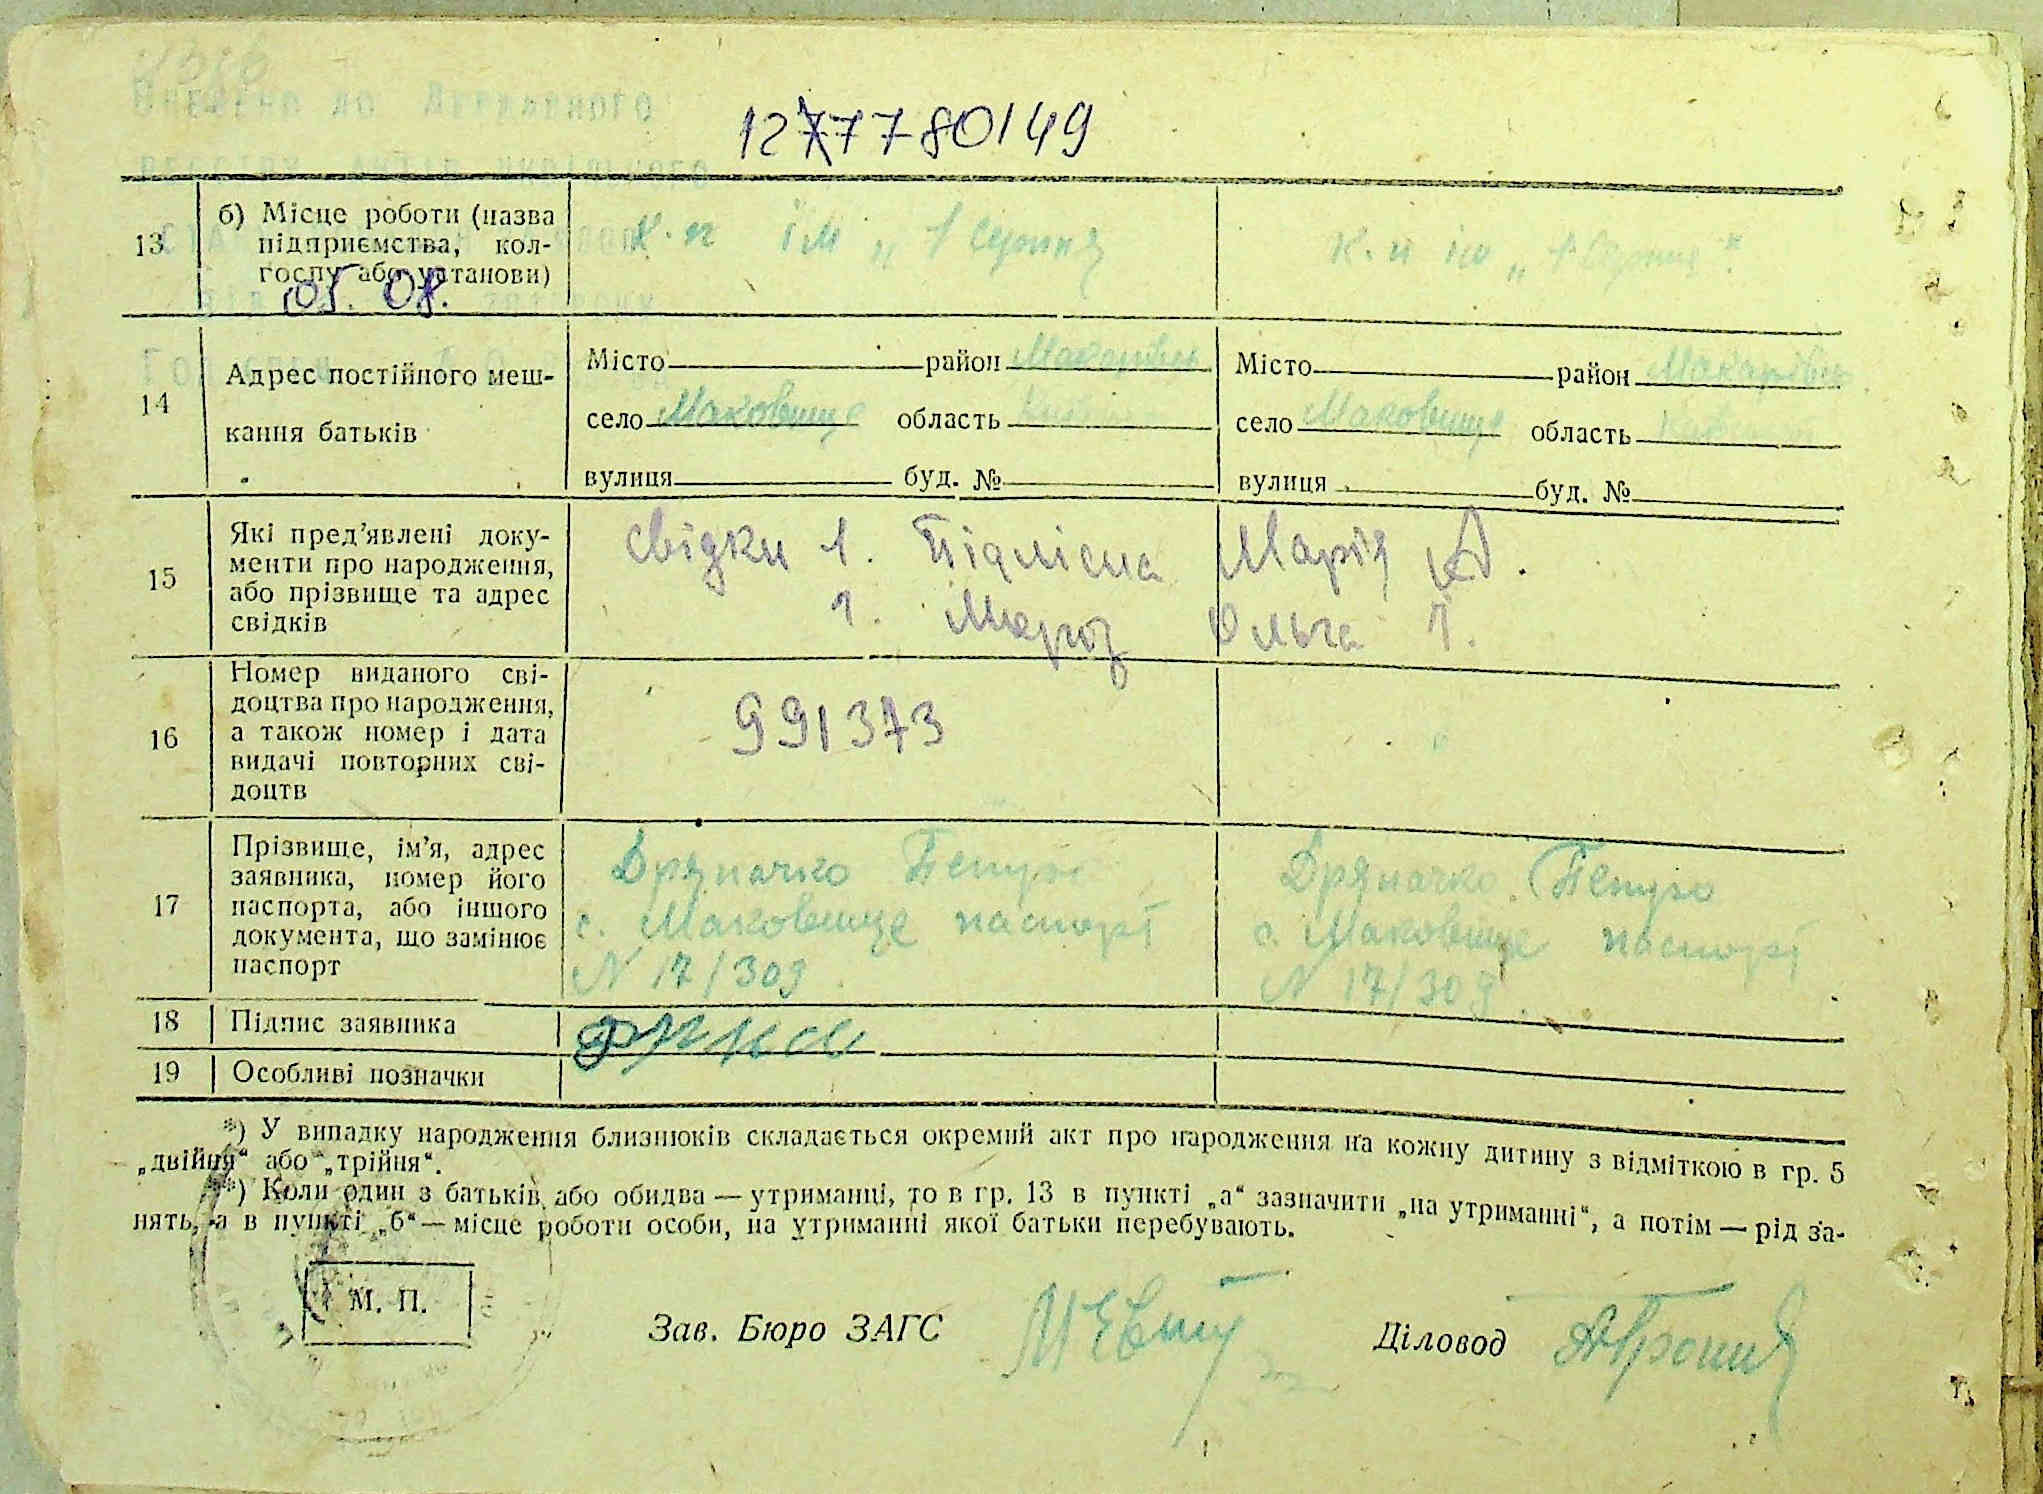 Внесено до Державного
1277780149
реєстру актів цивільного
13
б) Місце роботи (назва
підприємства, кол-
госпу або установи)
05. 08.
к-п ім „ 1 Серпня
к. п ім „ 1 Серпня"
14
Адрес постійного меш-
кання батьків
Місто район Макарівсь
село Маковище область Київська
вулиця буд. №
Місто район Макарівсь
село Маковище область Київська
вулиця буд. №
15
Які пред’явлені доку-
менти про народження,
або прізвище та адрес
свідків
свідки 1. Підлісна Марія А.
1. Мороз Ольга І.
16
Номер виданого сві-
доцтва про народження,
а також номер і дата
видачі повторних сві-
доцтв
991373
17
Прізвище, ім’я, адрес
заявника, номер його
паспорта, або іншого
документа, що замінює
паспорт
Дряпачко Петро
с. Маковище паспорт
N 17/309
Дряпачко Петро
с. Маковище паспорт
N 17/309
18
Підпис заявника
19
Особливі позначки
*) У випадку народження близнюків складається окремий акт про народження на кожну дитину з відміткою в гр. 5
„двійня“ або „трійня“.
**) Коли один з батьків або обидва — утриманці, то в гр. 13 в пункті „а“ зазначити „на утриманні“, а потім — рід за-
нять, а в пункті „б“ — місце роботи особи, на утриманні якої батьки перебувають.
М. П.
Зав. Бюро ЗАГС
Діловод